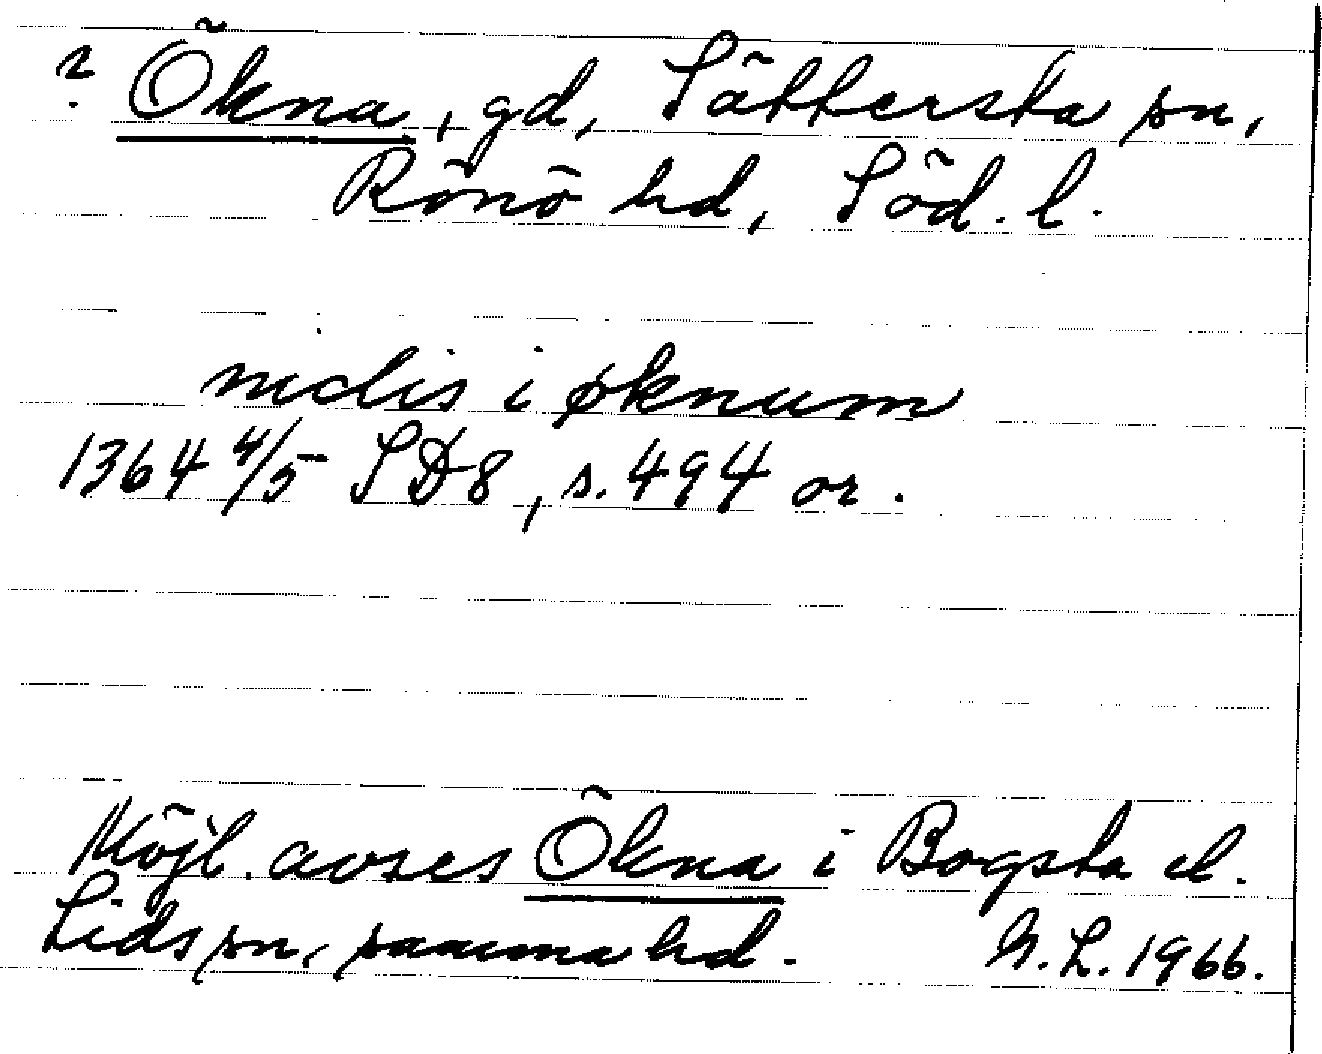 ? Ökna, gd, Sättersta sn,
Rönö hd, Söd. l.
nidis i øknum
1364 4/5 SD8, s. 494 or.
Möjl. avses Ökna i Bogsta el.
Lids sn, samma hd. G.L. 1966.